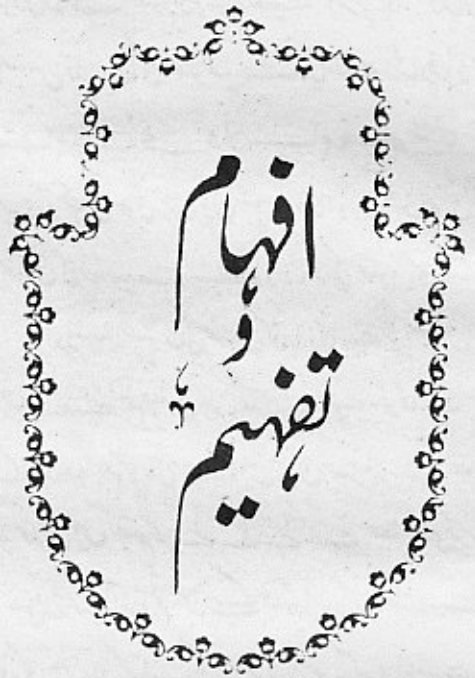 افہام
و
تفہیم